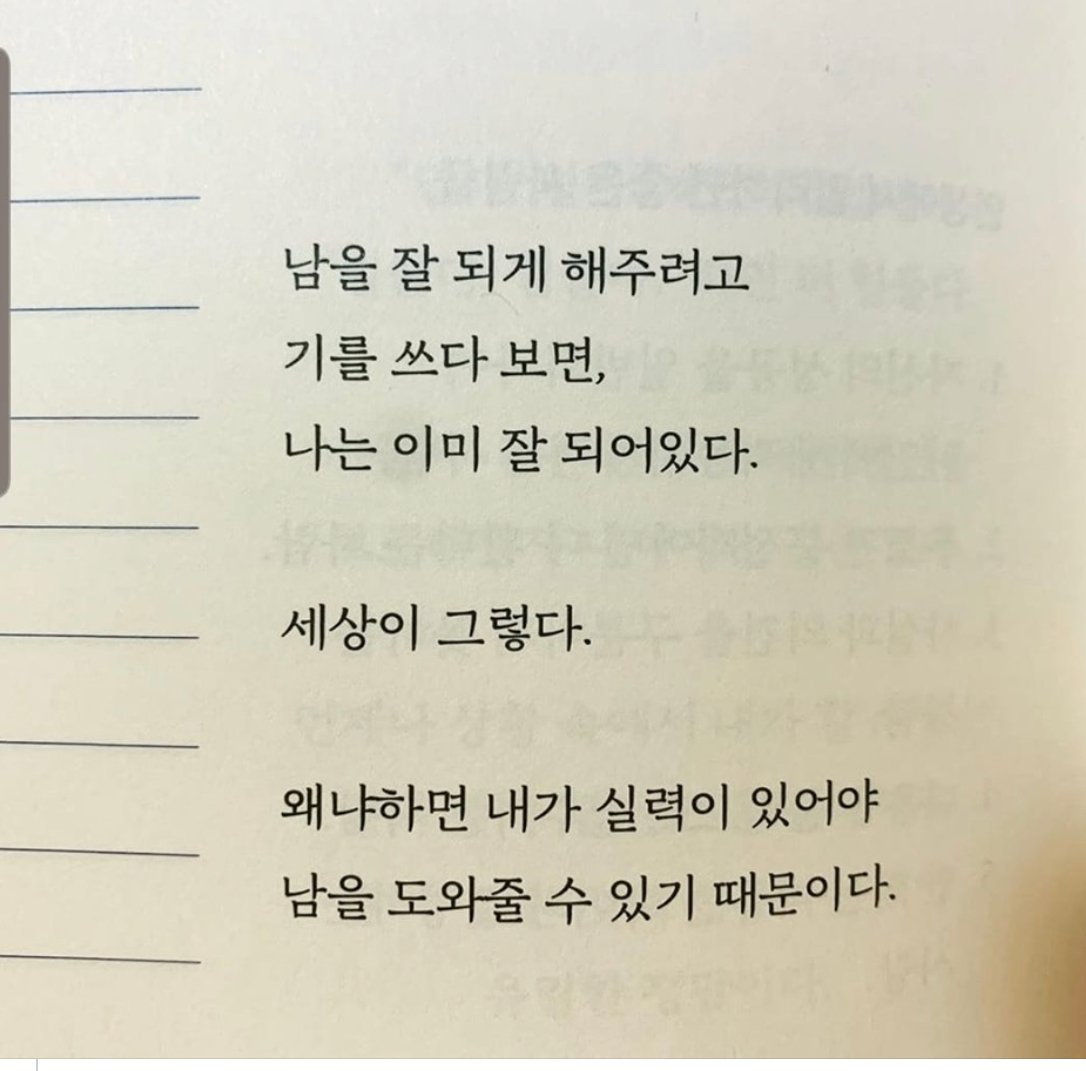 남을 잘 되게 해주려고
기를 쓰다 보면,
나는 이미 잘 되어있다.
세상이 그렇다.
왜냐하면 내가 실력이 있어야
남을 도와줄 수 있기 때문이다.